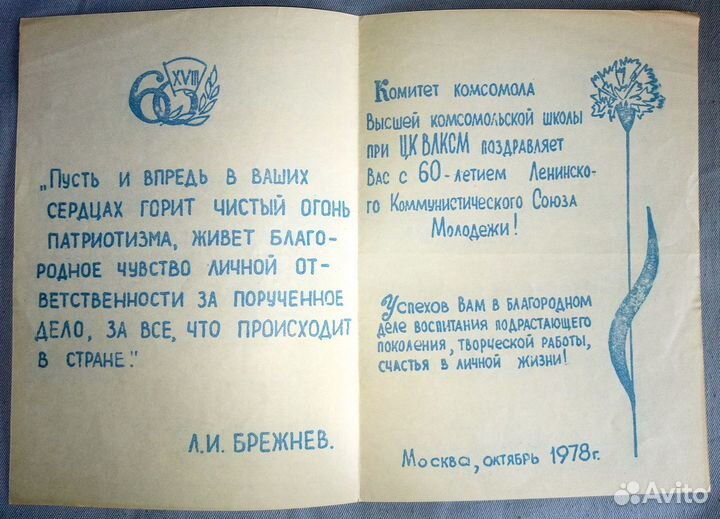 60
XVIII
„Пусть и впредь в ваших
сердцах горит чистый огонь
патриотизма, живет благо-
родное чувство личной от-
ветственности за порученное
дело, за все, что происходит
в стране."
Л.И. Брежнев.
Комитет комсомола
Высшей комсомольской школы
при ЦК ВЛКСМ поздравляет
Вас с 60-летием Ленинско-
го Коммунистического Союза
Молодежи!
Успехов Вам в благородном
деле воспитания подрастающего
поколения, творческой работы,
счастья в личной жизни!
Москва, октябрь 1978г.
Avito